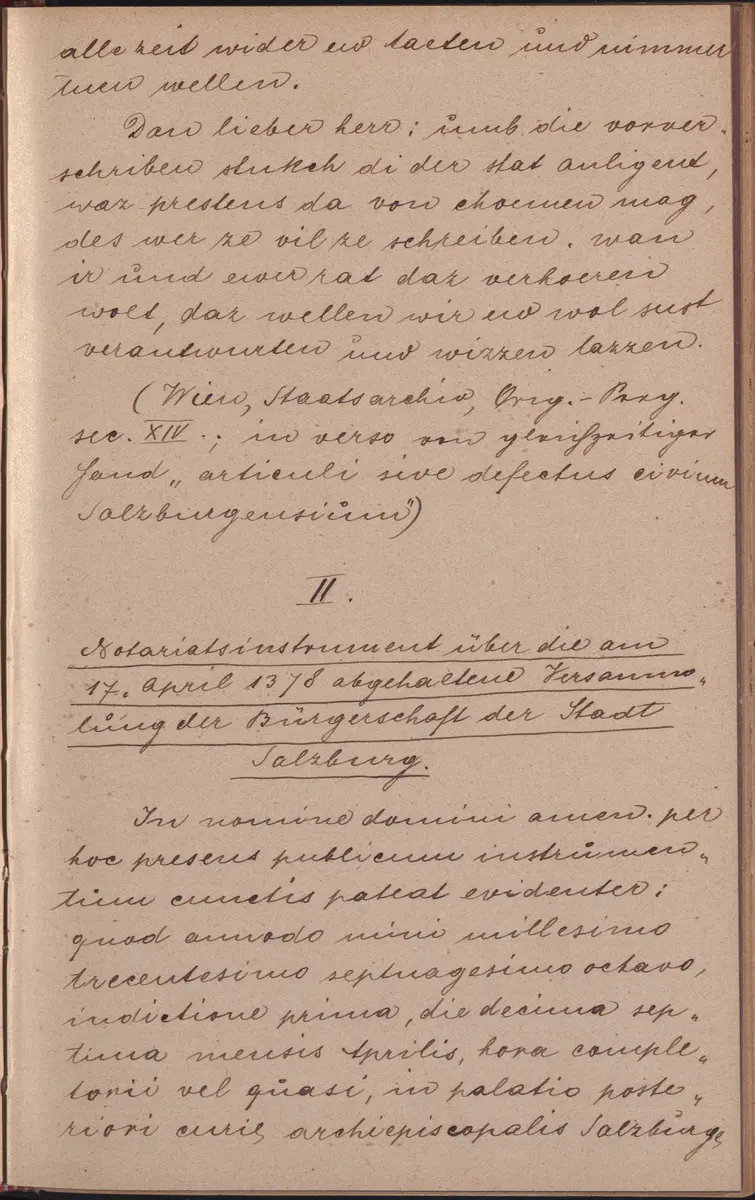 alle zeit wider ew taeten und nimmer
tuen wellen.
Dan lieber herr: umb die vorver„
schriben stukch di der stat anligent,
waz prestens da von choemen mag,
des wer ze vil ze schreiben. wan
ir und ewer rat daz verhoeren
wolt, daz wellen wir ew wol sust
verantwurten und wizzen lazzen.
(Wien, Staatsarchiv, Orig.-Perg.
sec. XIV.; in verso von gleichzeitiger
Hand „articuli sive defectus civium
Salzburgensium")
II.
Notariatsinstrument über die am
17. April 1378 abgehaltene Versamm„
lung der Bürgerschaft der Stadt
Salzburg.
In nomine domini amen. per
hoc presens publicum instrumen„
tum cunctis pateat evidenter:
quod annodo mini millesimo
trecentesimo septuagesimo octavo,
indictione prima, die decima sep„
tima mensis Aprilis, hora comple„
torii vel quasi, in palatio poste„
riori curie archiepiscopalis Salzburge